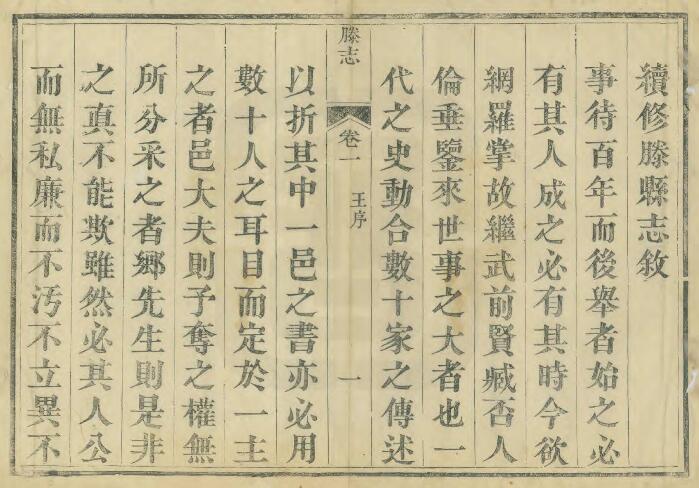 續修滕縣志敘
事待百年而後舉者始之必
有其人成之必有其時今欲
網羅掌故繼武前賢臧否人
倫垂鑒來世事之大者也一
代之史動合數十家之傳述
滕志
卷一
王序
一
以折其中一邑之書亦必用
數十人之耳目而定於一主
之者邑大夫則予奪之權無
所分采之者鄉先生則是非
之真不能欺雖然必其人公
而無私廉而不汚不立異不